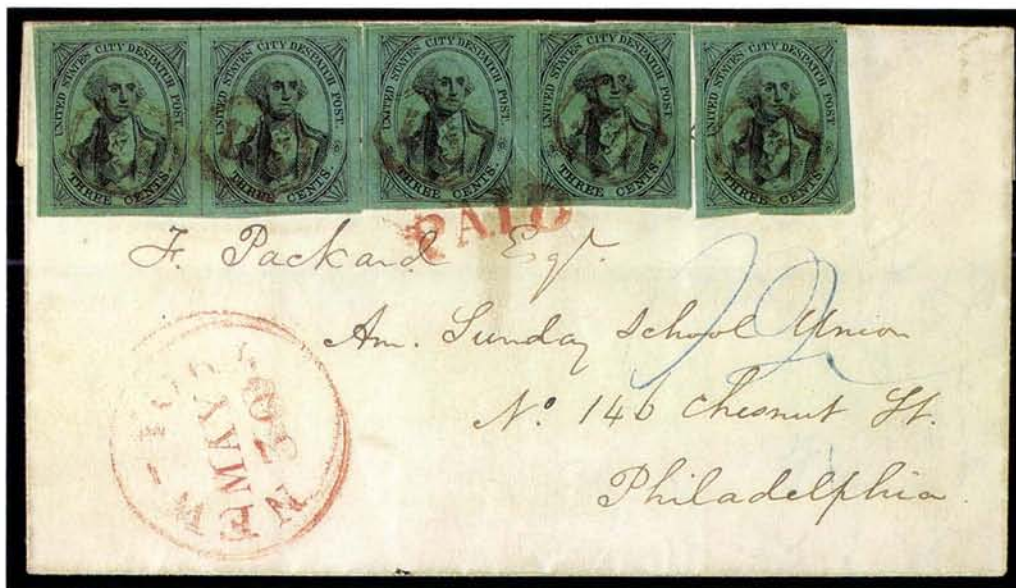 UNITED STATES CITY DESPATCH POST. THREE CENTS.
UNITED STATES CITY DESPATCH POST. THREE CENTS.
UNITED STATES CITY DESPATCH POST. THREE CENTS.
UNITED STATES CITY DESPATCH POST. THREE CENTS.
UNITED STATES CITY DESPATCH POST. THREE CENTS.
PAID
F. Packard Esqr.
Am. Sunday School Union
No. 146 Chesnut St.
Philadelphia.
NEW-
MAY